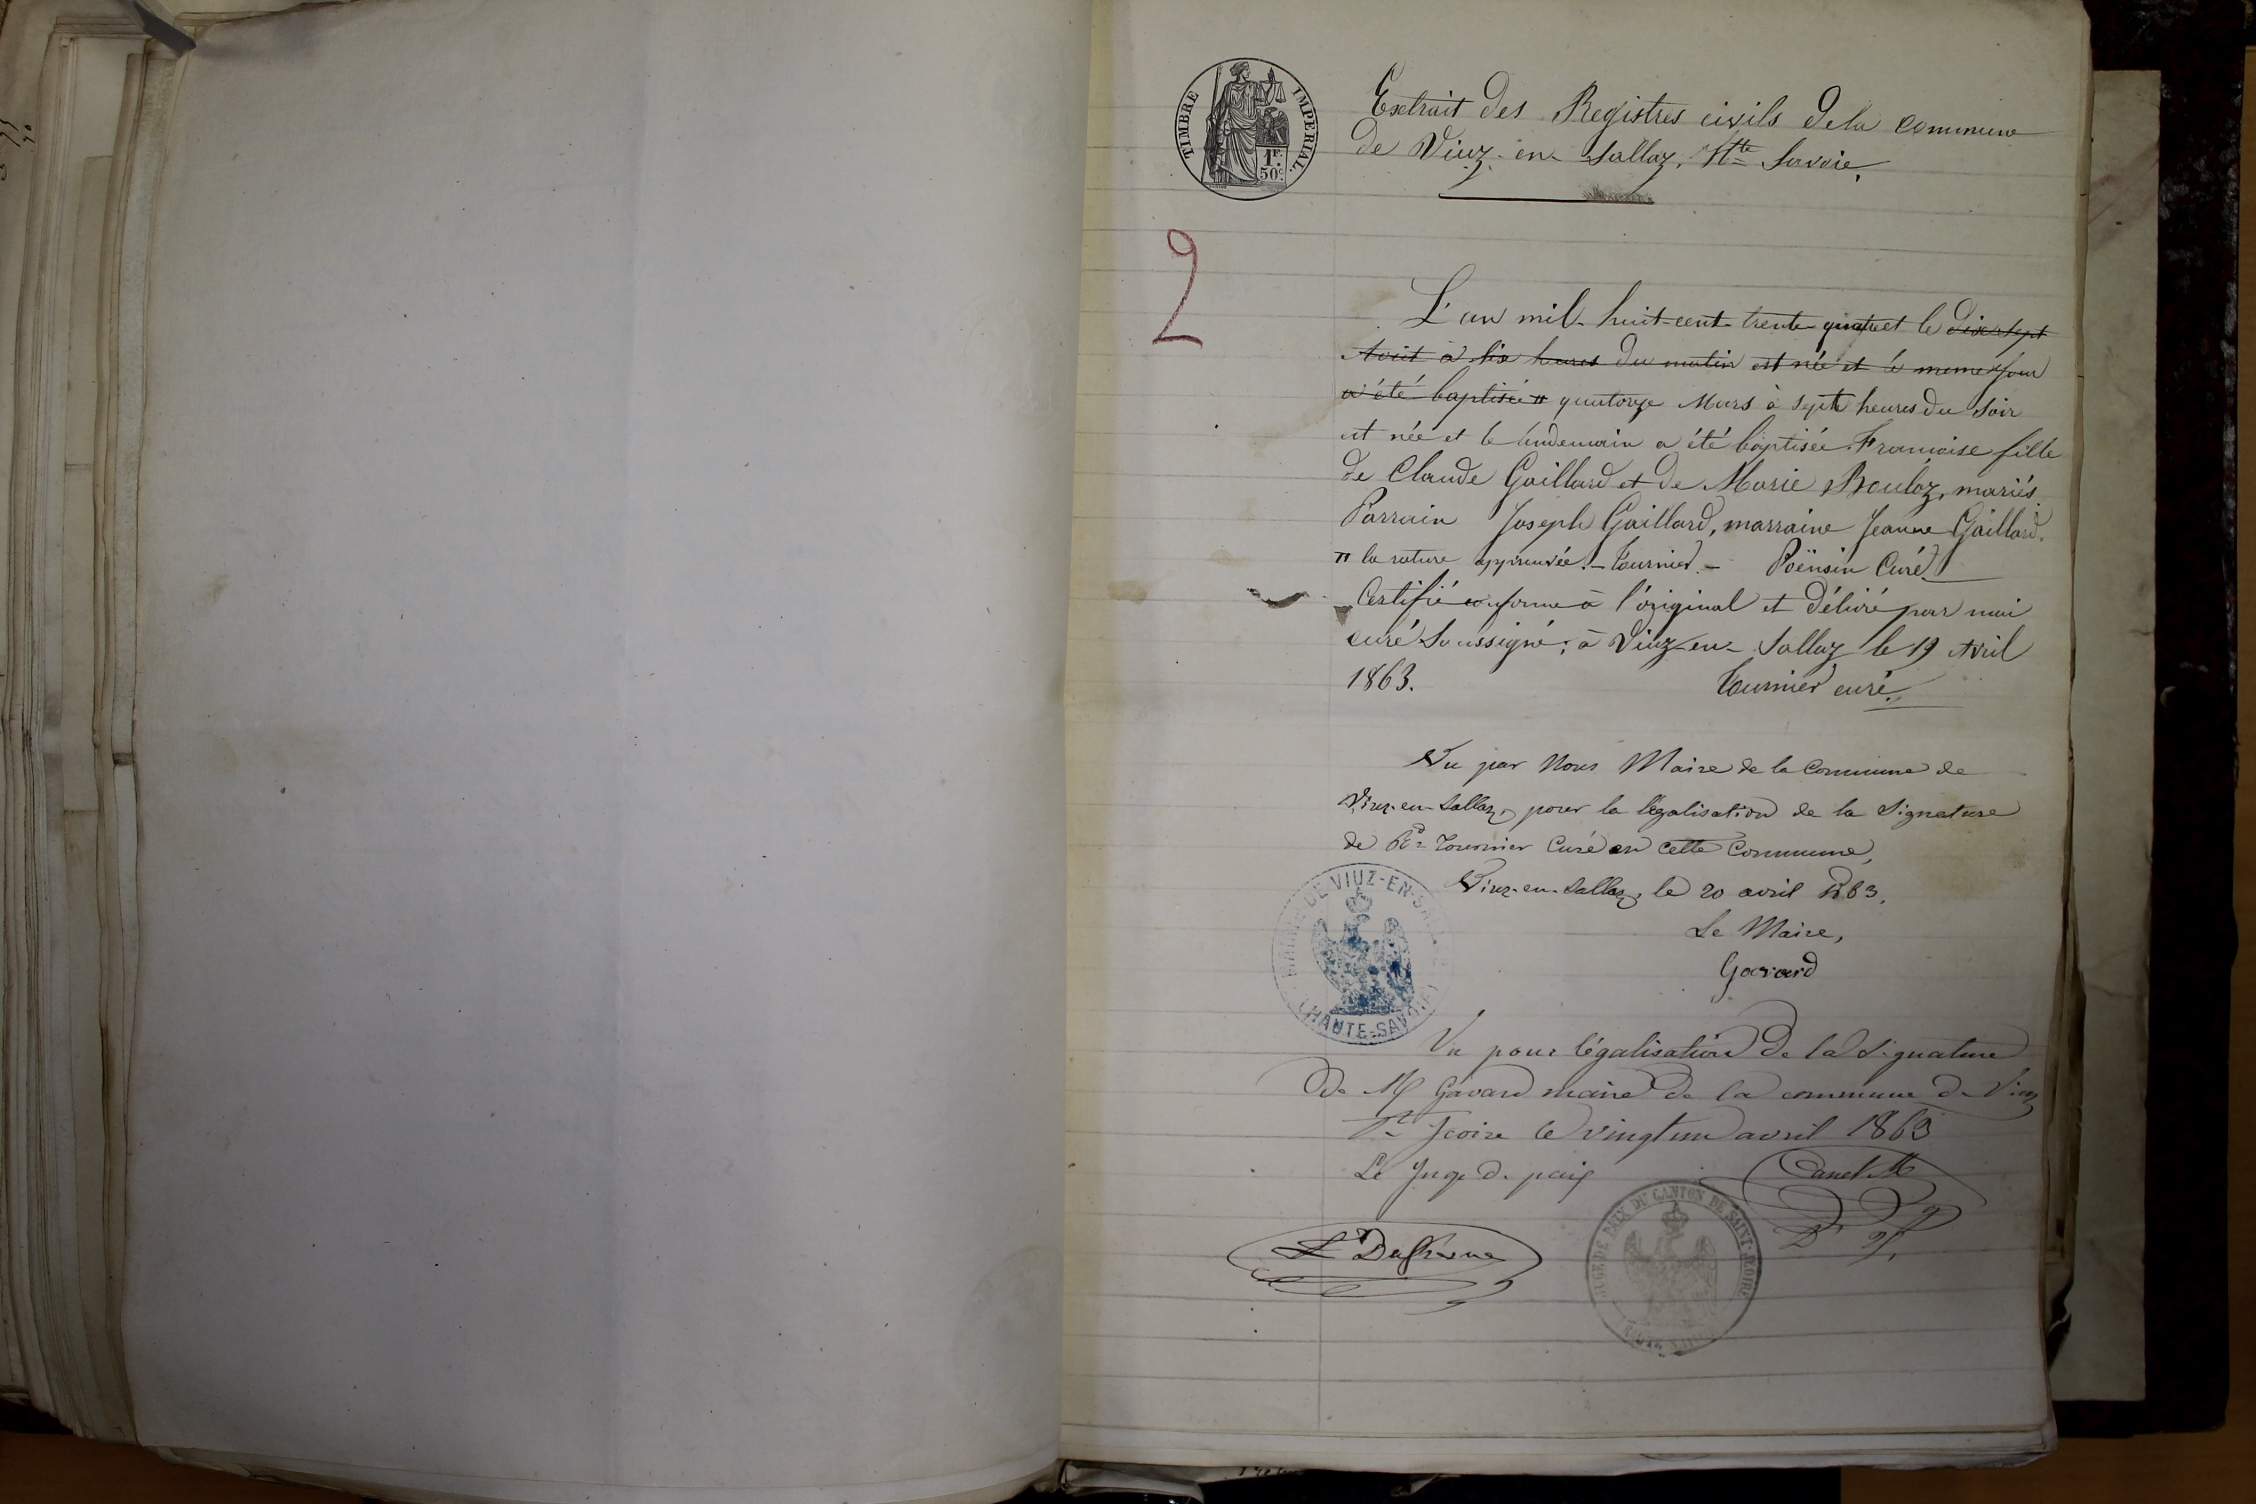 TIMBRE IMPERIAL.
1F. 50c.
Extrait des Registres civils de la commune
de Viuz-en-Sallaz, Hte Savoie.
2
L'an mil-huit-cent-trente-quatre et le dix-sept
Août à dix heures du matin est née et le meme jour
a été baptisée " quatorze Mars à sept heures du soir
est née et le lendemain a été baptisée Francoise fille
de Claude Gaillard et de Marie Bouloz, mariés.
Parrain Joseph Gaillard, marraine Jeanne Gaillard.
" la rature approuvée.- Tournier.- Poënsin Curé
Certifié conforme à l'original et délivré par moi
curé soussigné; à Viuz-en-Sallaz le 19 Avril
1863. Tournier curé.
Vu par Nous Maire de la Commune de
Viuz-en-Sallaz, pour la légalisation de la Signature
de Rd Tournier Curé en cette Commune,
Viuz-en-Sallaz, le 20 avril 1863.
Le Maire,
Gavard
MAIRIE DE VIUZ-EN-SALLAZ
(HAUTE-SAVOIE)
Vu pour légalisation de la Signature
de M Gavard maire de la commune de Viuz
St Jeoire le vingt un avril 1863
Le Juge de paix
JUGE DE PAIX DU CANTON DE SAINT-JEOIRE